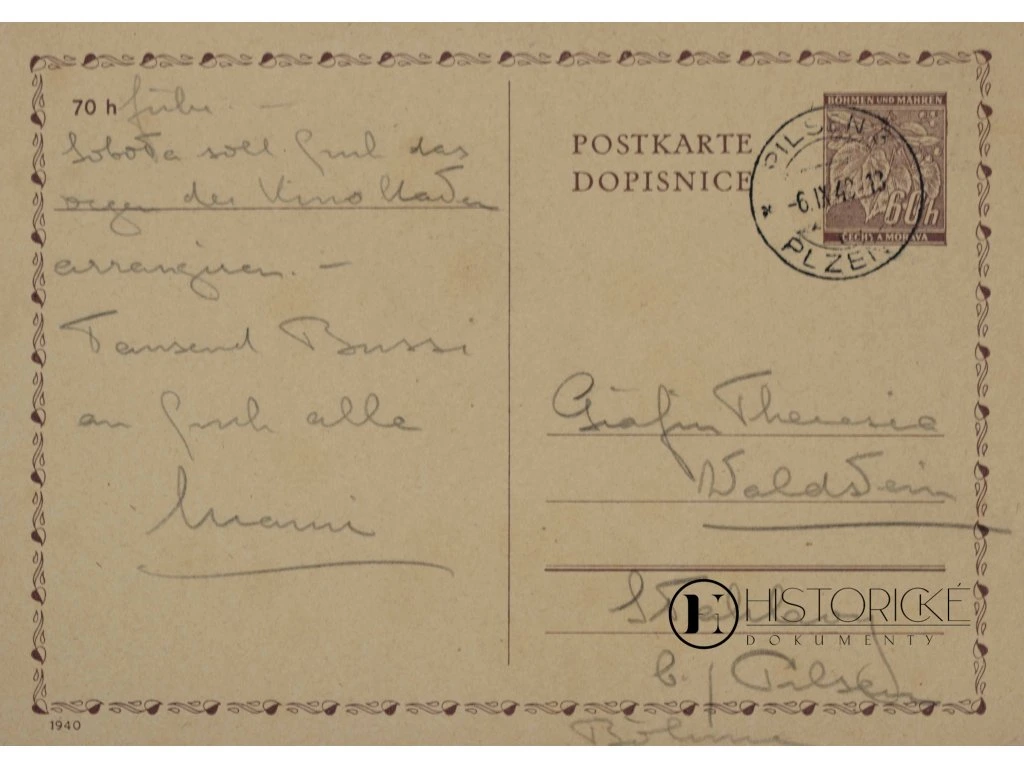 70 h
Sobota soll Euch das
wegen der Kino Karten
arrangieren. –
Tausend Bussi
an Euch alle
Mami
1940
POSTKARTE
DOPISNICE
BÖHMEN UND MÄHREN
60h
ČECHY A MORAVA
PILSEN
-6.IX.40.-13
PLZEŇ
Gräfin Theresia
Waldstein
HISTORICKÉ
DOKUMENTY
b./ Pilsen
Böhmen